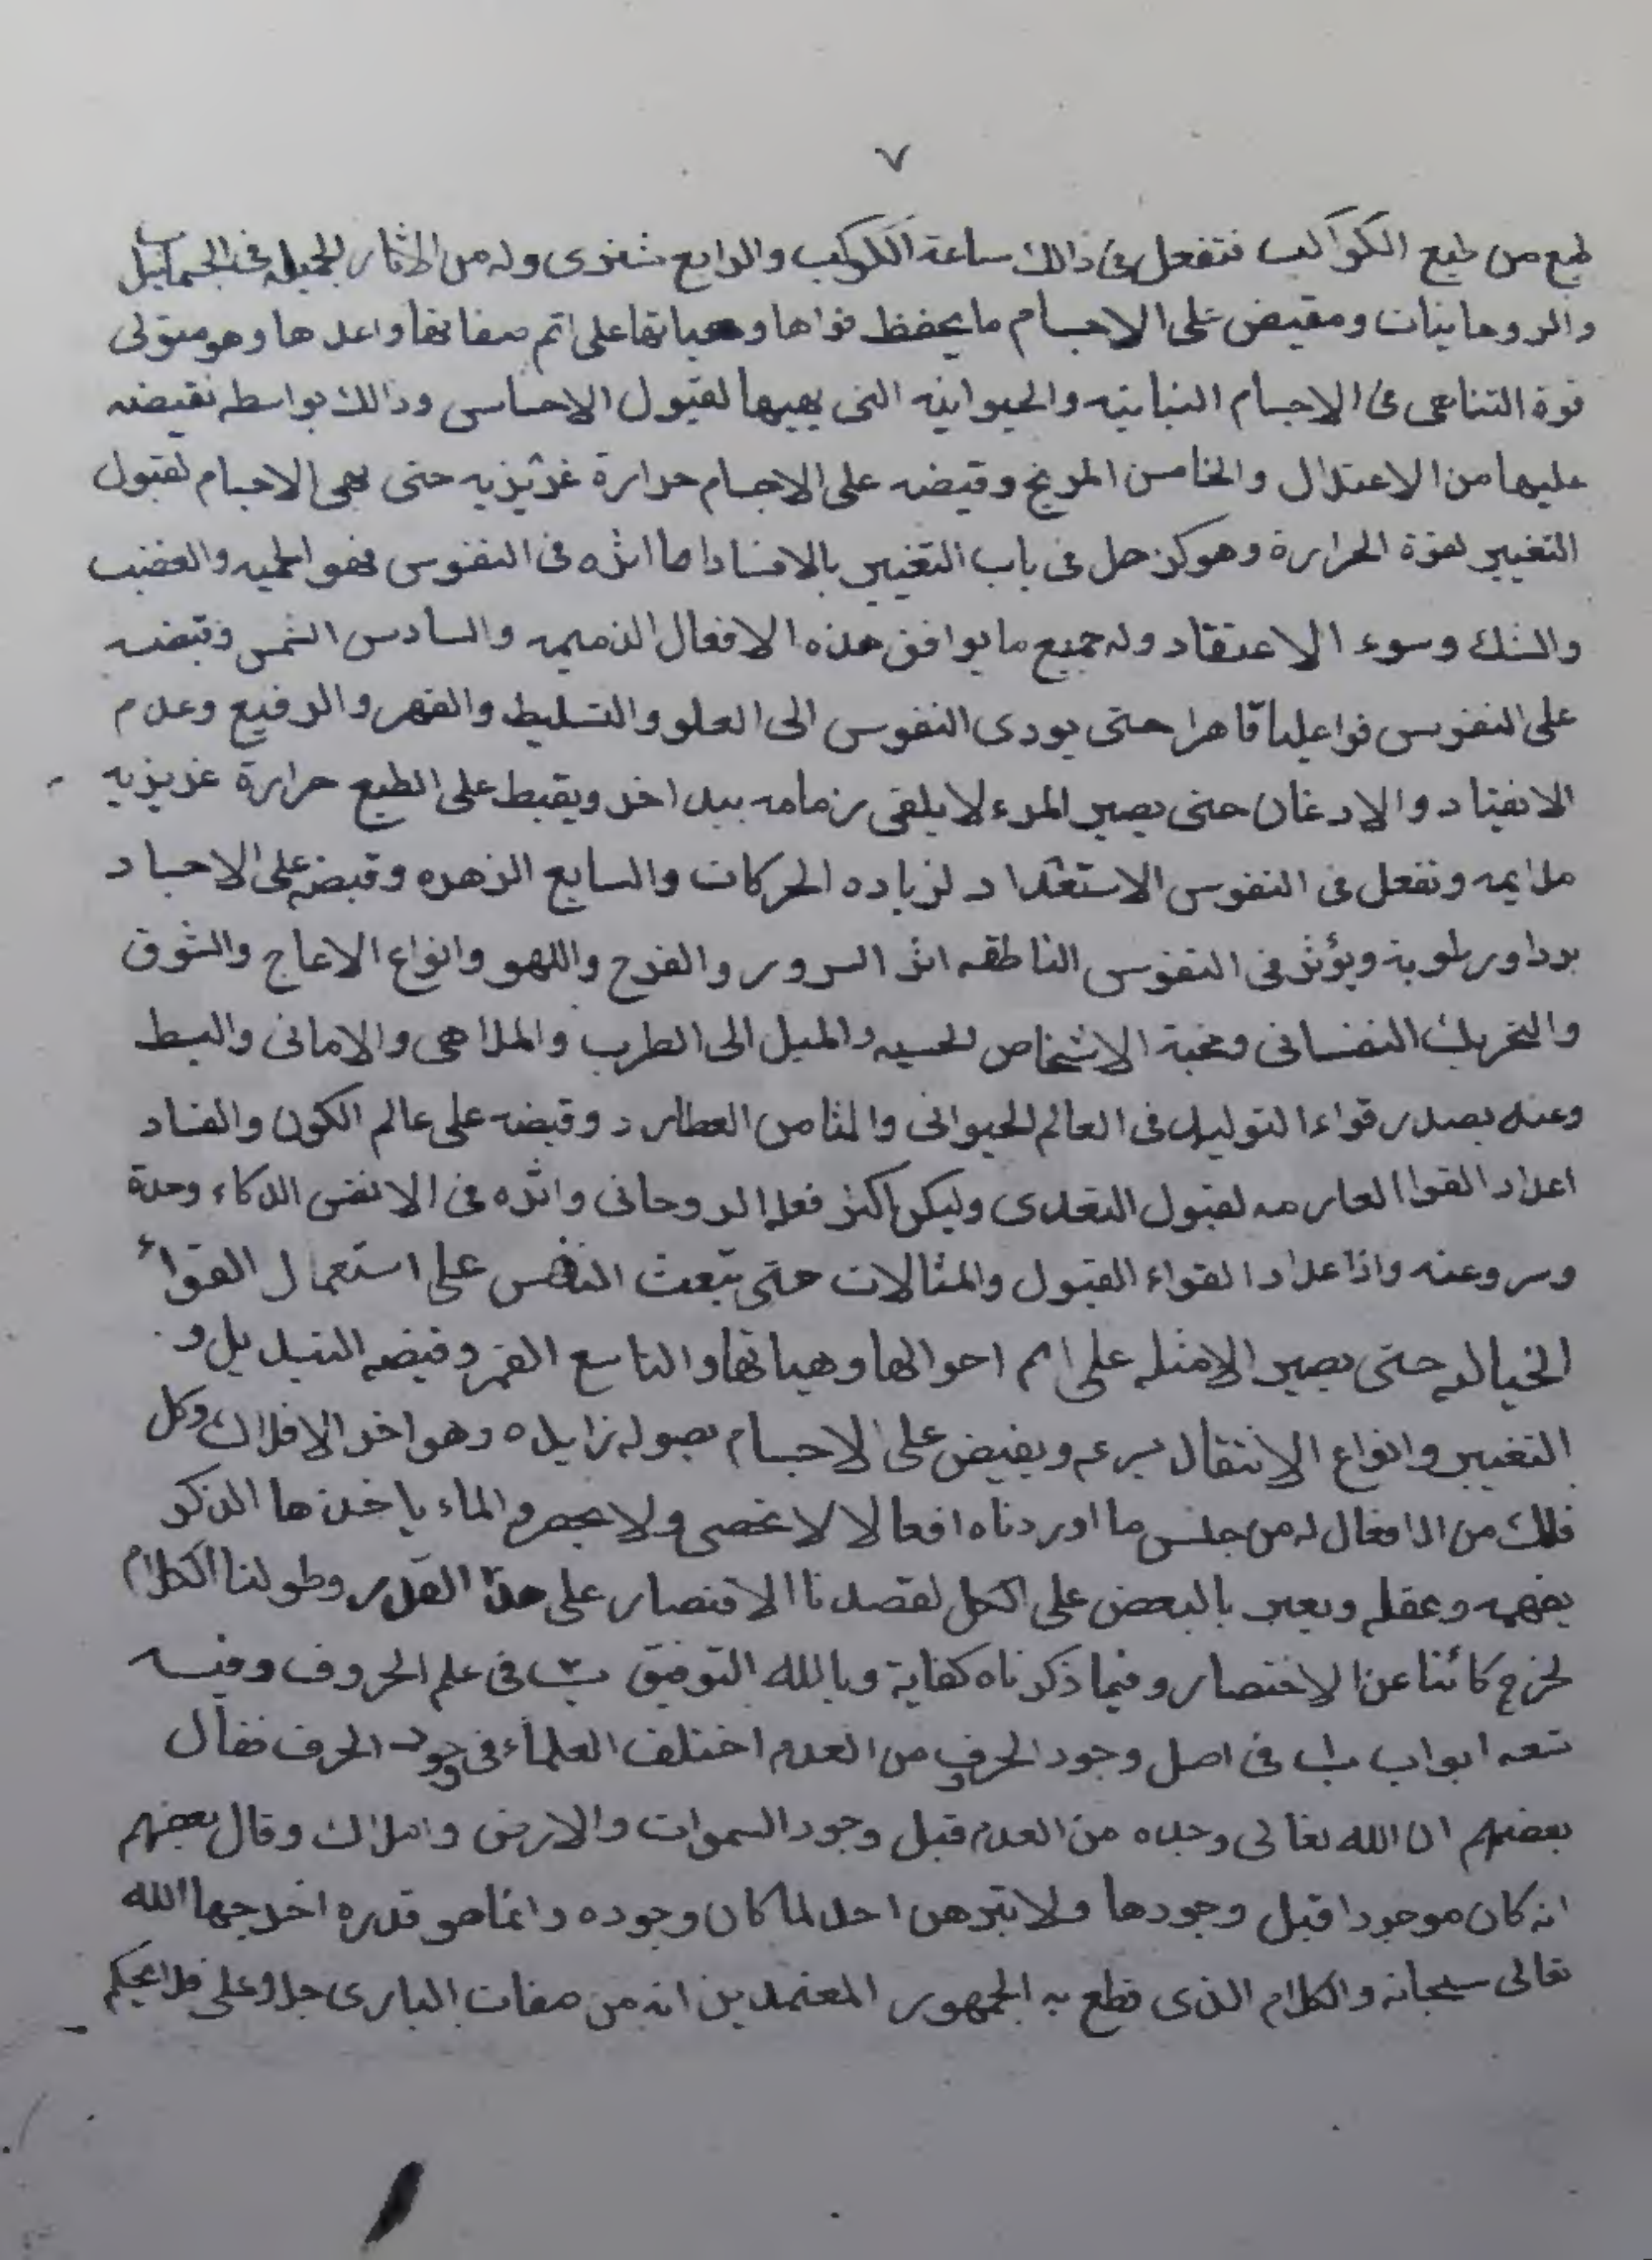 ٧
طبع من طبع الكواكب فتفعل فى ذالك ساعة الكوكب والرابع مشترى وله من الاثار الجميله فى الجمايل
والروحانيات ومقيض على الاجسام ما يحفظ قواها وهياتها على اتم صفاتها واعدها وهو متولى
قوة التناهى فى الاجسام النباتيه والحيوانيه التى يهيها لقبول الاحساس وذالك بواسطه نقيضه
عليها من الاعتدال والخامس المريخ وقيضه على الاجسام حرارة غريزيه حتى يهى الاجسام لقبول
التغيير لقوة الحرارة وهو كزحل فى باب التغيير بالافساد اما اثره فى النفوس فهو الحميه والغضب
والشك وسوء الاعتقاد وله جميع ما يوافق هذه الافعال الذميمه والسادس الشمس وقيضه
على النفوس قوا عليا قاهرا حتى يودى النفوس الى العلو والتسليط والقهر والرفيع وعدم
الانقياد والادغان حتى يصير المرء لا يلقى زمامه بيد اخر ويقبط على الطبع حرارة غريزيه
ملايمه وتفعل فى النفوس الاستعداد لزياده الحركات والسابع الزهره وقيضه على الاجساد
بردا ورطوبة ويؤثر فى النفوس الناطقه اثر السرور والفرح واللهو وانواع الاعاج والشوق
والتحريك النفسانى ومحبة الاشخاص الحسيه والميل الى الطرب والملاهى والامانى والبسط
وعنه يصدر قواء التوليد فى العالم الحيوانى والثامن العطارد وقيضه على عالم الكون والفساد
اعداد القوا العارمه لقبول التعدى وليكن اكثر فعله الروحانى واثره فى الانفس الذكاء وحدة
وسروعنه واذا عداد القواء القبول والمثالات حتى تبعث النفس على استعمال القواء
الخياله حتى يصير الامثله على اتم احوالها وهياتها والتاسع القمر وقيضه التبديل و
التغيير وانواع الانتقال بسرعه ويفيض على الاجسام بصوله زايده وهو اخر الافلاك وكل
فلك من الافعال له من جنس ما اوردناه افعالا لا تحصى ولا تحصر والماء ياخذها الذكر
يفهمه وعقله ويعبر بالبعض على الكل لقصدنا الاقتصار على هذا القدر وطولنا الكلام
لخرج كاتنا عن الاختصار وفيما ذكرناه كفاية وبالله التوفيق ب فى علم الحروف وفيه
تسعه ابواب باب فى اصل وجود الحرف من العدم اختلف العلماء فى وجود الحرف فقال
بعضهم ان الله تعالى وحده من العدم قبل وجود السموات والارض واملاك وقال بعضهم
انه كان موجودا قبل وجودها ولا تبرهن احد لما كان وجوده وانما هو قدره اخرجها الله
تعالى سبحانه والكلام الذى قطع به الجمهور المعتمدين انه من صفات البارى جل وعلى فلا يحكم